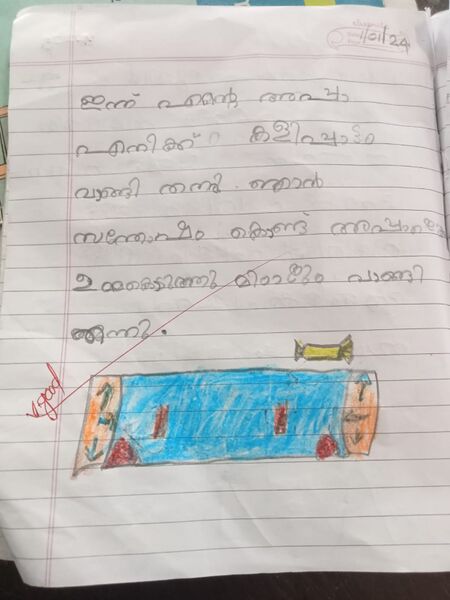 1/01/24
ഇന്ന് എന്റെ അപ്പാ
എനിക്ക് കളിപ്പാട്ടം
വാങ്ങി തന്നു. ഞാൻ
സന്തോഷം കൊണ്ട്
ഉമ്മകൊടുത്തു മിഠായും വാങ്ങി
തന്നു.
good